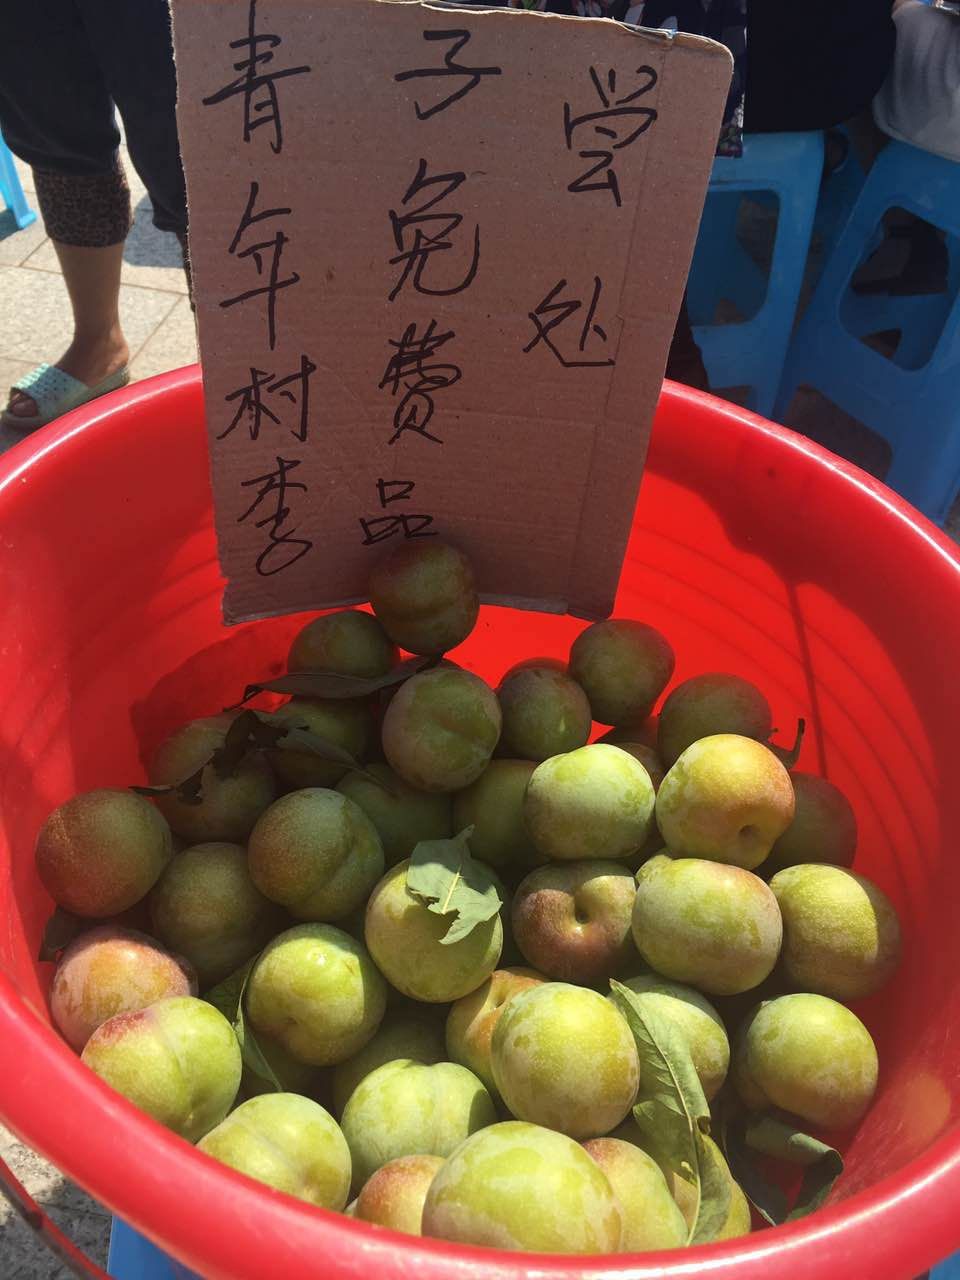 青年村李
子免费品
尝处